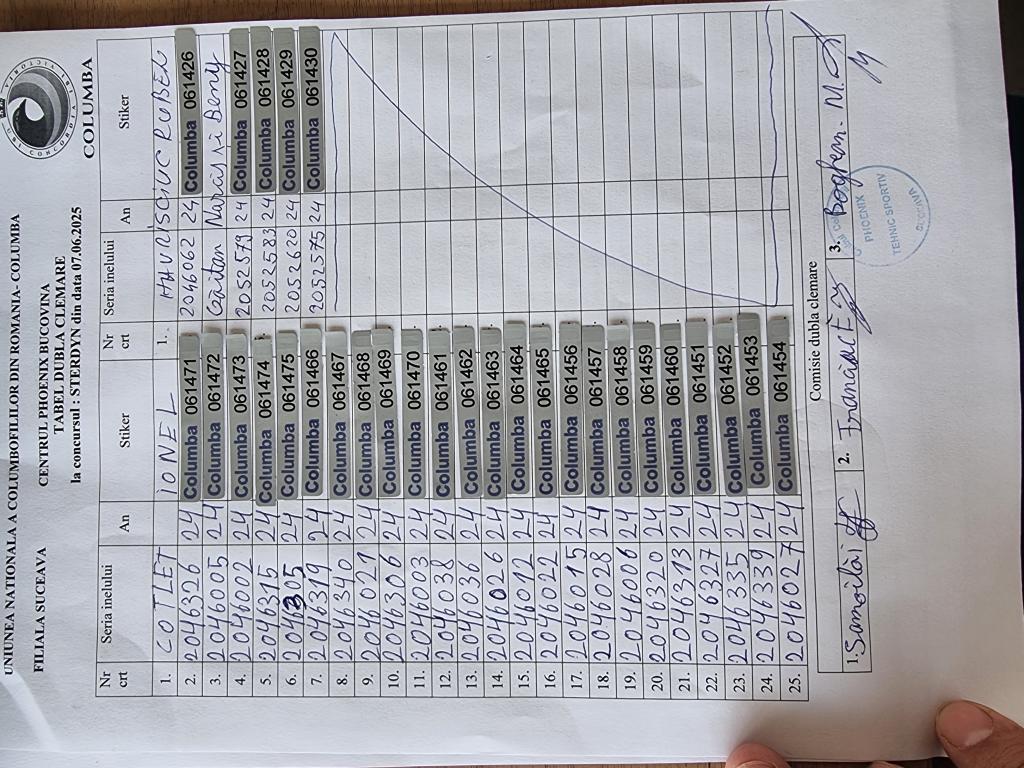 UNIUNEA NATIONALA A COLUMBOFILILOR DIN ROMANIA- COLUMBA
FILIALA SUCEAVA CENTRUL PHOENIX BUCOVINA
TABEL DUBLA CLEMARE
la concursul : STERDYN din data 07.06.2025
COLUMBA
Nr crt Seria inelului An Stiker Nr crt Seria inelului An Stiker
1. COTLET IONEL 1. HAVRISCIUC RUBEN
2. 2046326 24 Columba 061471 2046062 24 Columba 061426
3. 2046005 24 Columba 061472 Găitan Beny
4. 2046002 24 Columba 061473 2052579 24 Columba 061427
5. 2046315 24 Columba 061474 2052583 24 Columba 061428
6. 2046305 24 Columba 061475 2052620 24 Columba 061429
7. 2046319 24 Columba 061466 2052575 24 Columba 061430
8. 2046340 24 Columba 061467
9. 2046021 24 Columba 061468
10. 2046306 24 Columba 061469
11. 2046003 24 Columba 061470
12. 2046038 24 Columba 061461
13. 2046036 24 Columba 061462
14. 2046026 24 Columba 061463
15. 2046012 24 Columba 061464
16. 2046022 24 Columba 061465
17. 2046015 24 Columba 061456
18. 2046028 24 Columba 061457
19. 2046006 24 Columba 061458
20. 2046320 24 Columba 061459
21. 2046313 24 Columba 061460
22. 2046327 24 Columba 061451
23. 2046335 24 Columba 061452
24. 2046339 24 Columba 061453
25. 2046027 24 Columba 061454
Comisie dubla clemare
1. Samoilăi 2. 3. Boghem. M.
PHOENIX
TEHNIC SPORTIV